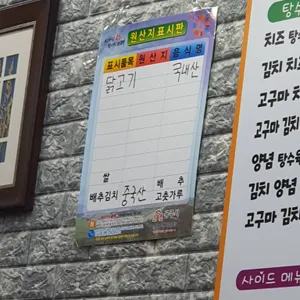 원산지표시판
표시품목 원산지 음식명
닭고기 국내산
쌀
배추김치 중국산 배추
고춧가루
탕수
치즈 탕수
김치 치즈
고구마 치
고구마 김
양념 탕수육
김치 양념
고구마 김치
사이드 메뉴